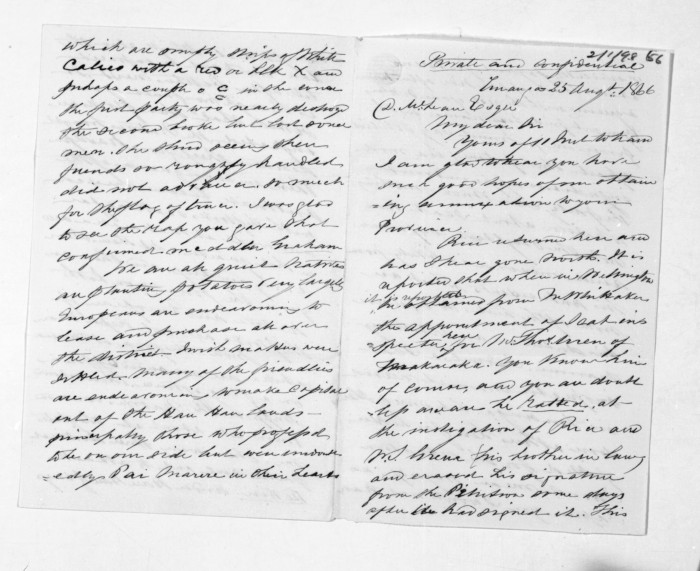 which are simply strips of White
Calico with a red or blk X and
perhaps a couple o c c in the corner
the first party was nearly destroyed
the second broke but lost some
men. The third seeing their
friends so roughly handled
did not advance. So much
for the flag of truce. I was glad
to see the rap you gave that
confirmed meddler Graham
We are all quiet Natives
are planting potatoes very largely
Europeans are endeavouring to
lease and purchase all over
the district until matters were
settled. Many of the friendlies
are endeavouring to make Capital
out of the Hau Hau lands
principally those who professed
to be on our side but were undoubt
edly Pai Marire in their hearts
21/1/98 56
Private and confidential
Turanga 23 Augt. 1866
D. McLean Esqre
My dear Sir
Yours of 11 Inst to hand
I am glad to hear you have
such good hopes of our obtain
ing annexation to your
Province
Rice returned here and
has I hear gone North. It is
reported that when in Wellington
it is reported he obtained from Mr Whitaker
the appointment of
for Mr
You know him
of course, and you are doubt
less aware he Ratted, at
the instigation of Rice and
W. Greene his brother in law
and erased his signature
from the Petition some days
after he had signed it. This